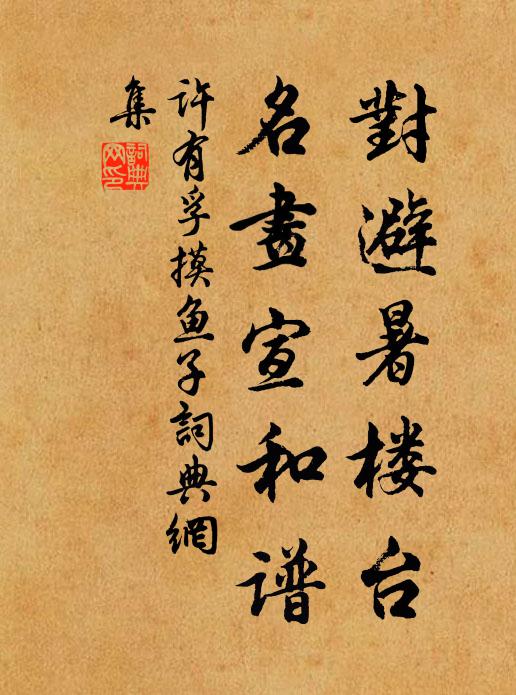 對避暑楼台
名畫宣和谱
许有孚摸鱼子詞典網
集
詞典網印